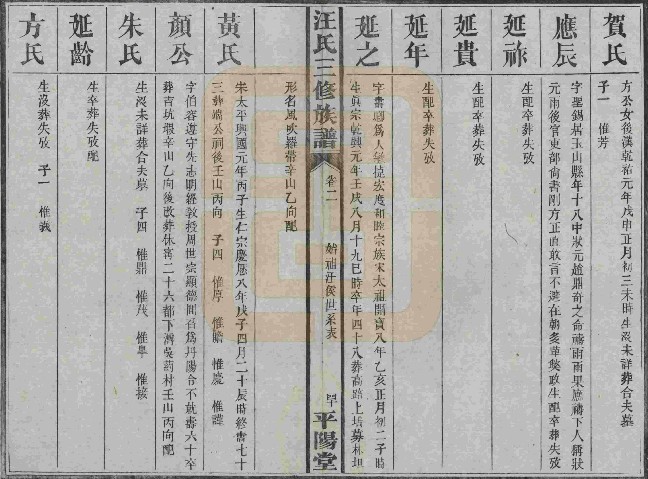 賀氏
方公女後漢乾祐元年戊申正月初三未時生沒未詳葬合夫墓
子一 惟芳
應辰
字聖錫居玉山縣年十八中狀元趙鼎奇之命禱雨雨果應禱下人稱狀
元雨後官吏部尚書剛方正直敢言不避在朝多革獘政生配卒葬失攷
延祚
生配卒葬失攷
延貴
生配卒葬失攷
延年
生配卒葬失攷
延之
字壽國爲人寬宏度和睦宗族宋太祖開寶八年乙亥正月初二子時
生眞宗乾興元年壬戌八月十九巳時卒年四十八葬高路上塘墓林坦
汪氏三修族譜
卷二
始祖汪侯世系表
平陽堂
形名風吹羅帶辛山乙向配
黃氏
宋太平興國元年丙子生仁宗慶曆八年戊子四月二十辰時終壽七十
三葬端公祠後壬山丙向 子四 惟厚 惟瞻 惟慶 惟諱
顔公
字伯容遵守先志明經敎授周世宗顯德間召爲丹陽令不就壽六十卒
葬吉坑塸辛山乙向後改葬休甯二十六都下灣吳葯村壬山丙向配
朱氏
生沒未詳葬合夫墓 子四 惟鼎 惟茂 惟學 惟接
延齡
生卒葬失攷配
方氏
生沒葬失攷 子一 惟義